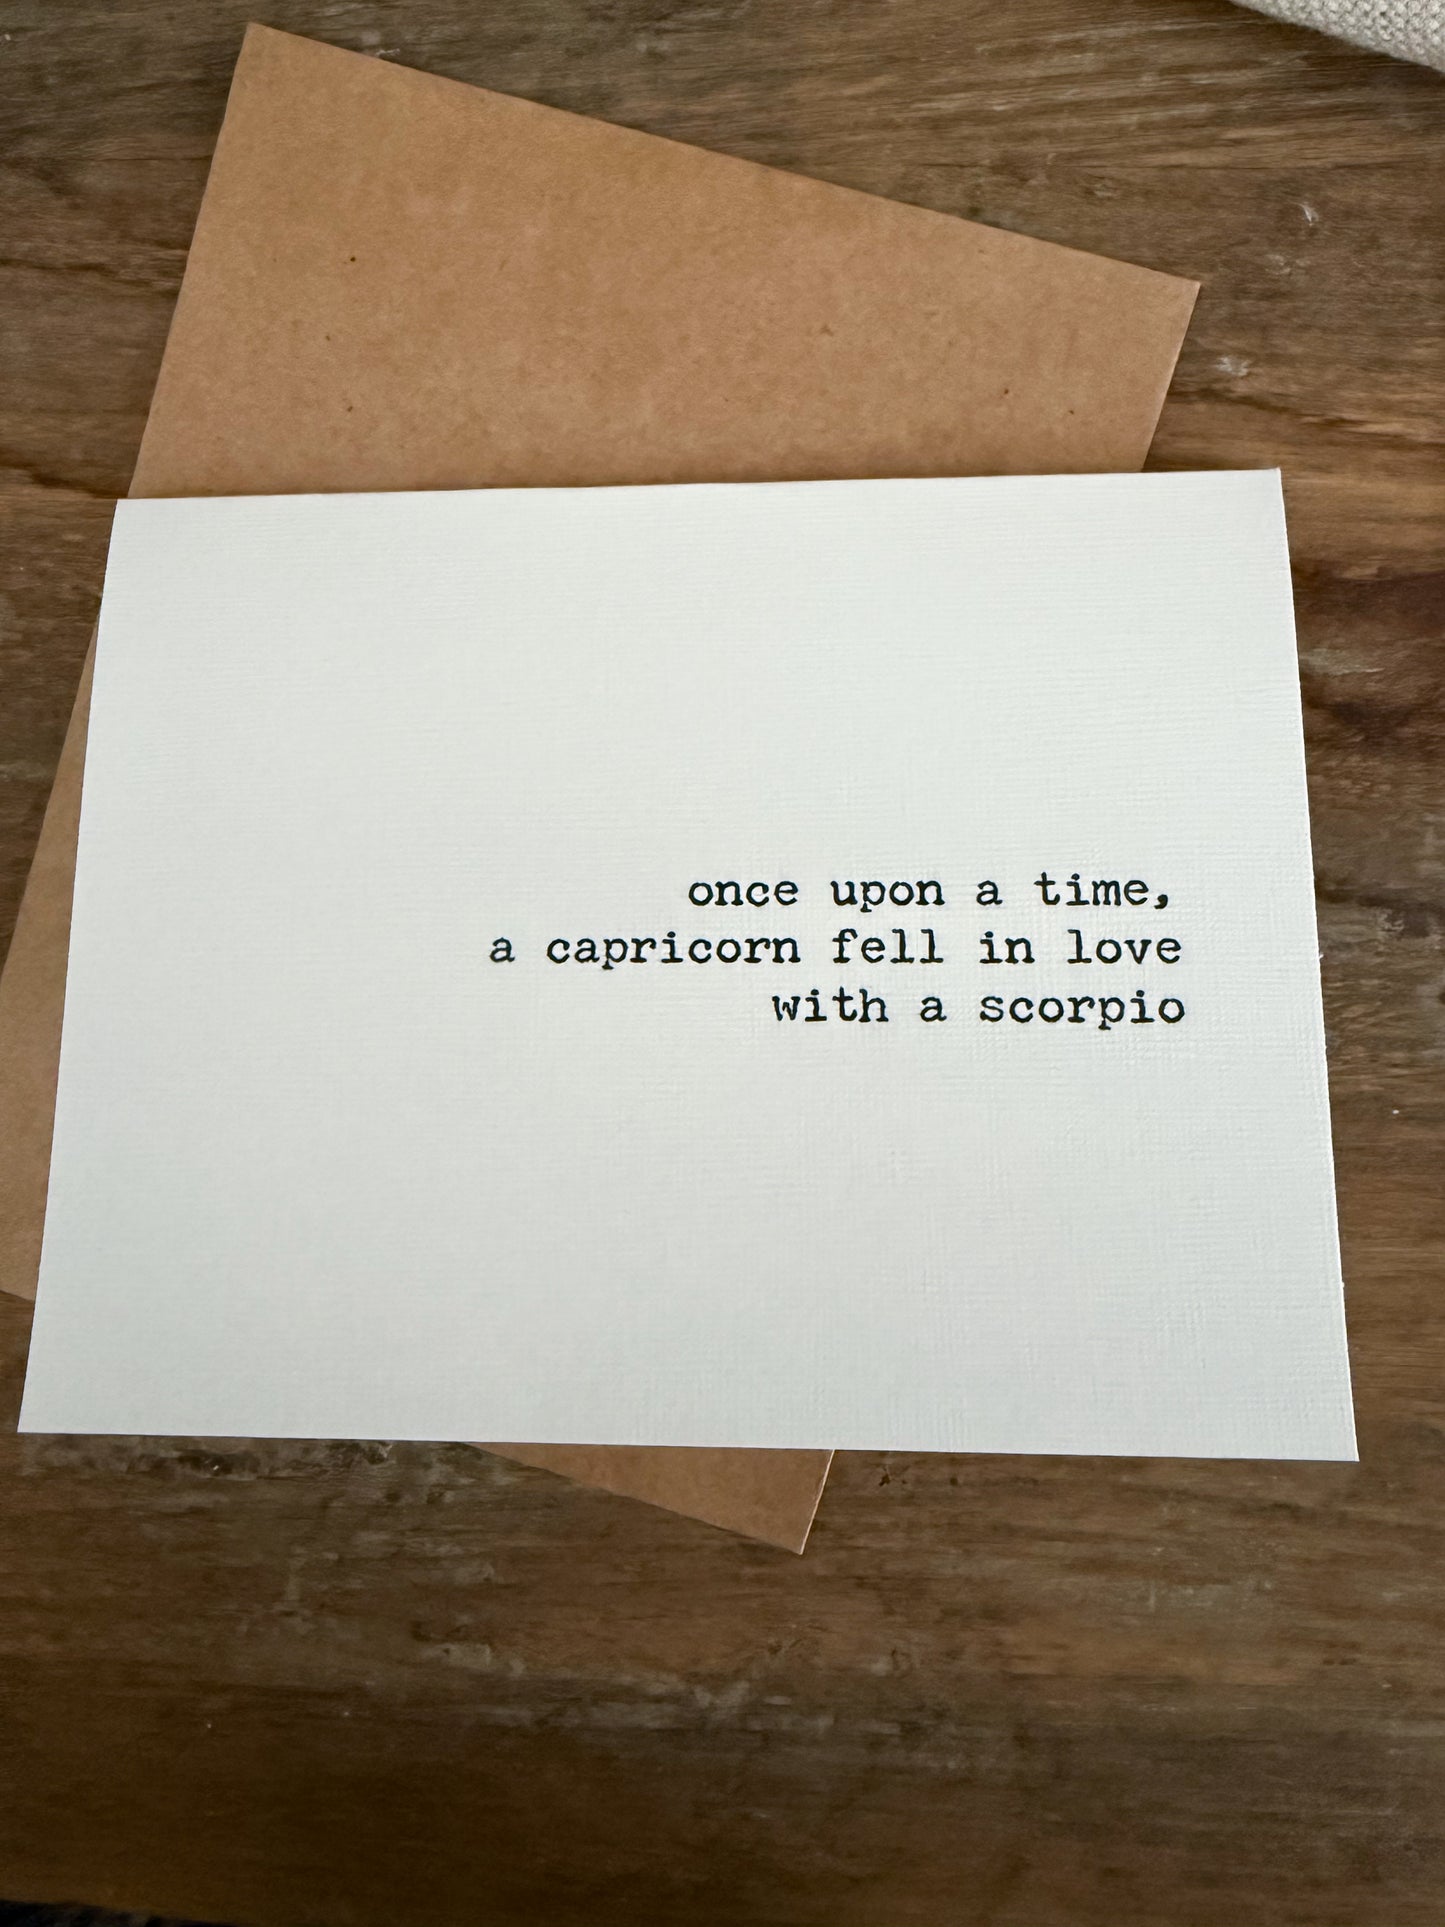 once upon a time,
a capricorn fell in love
with a scorpio